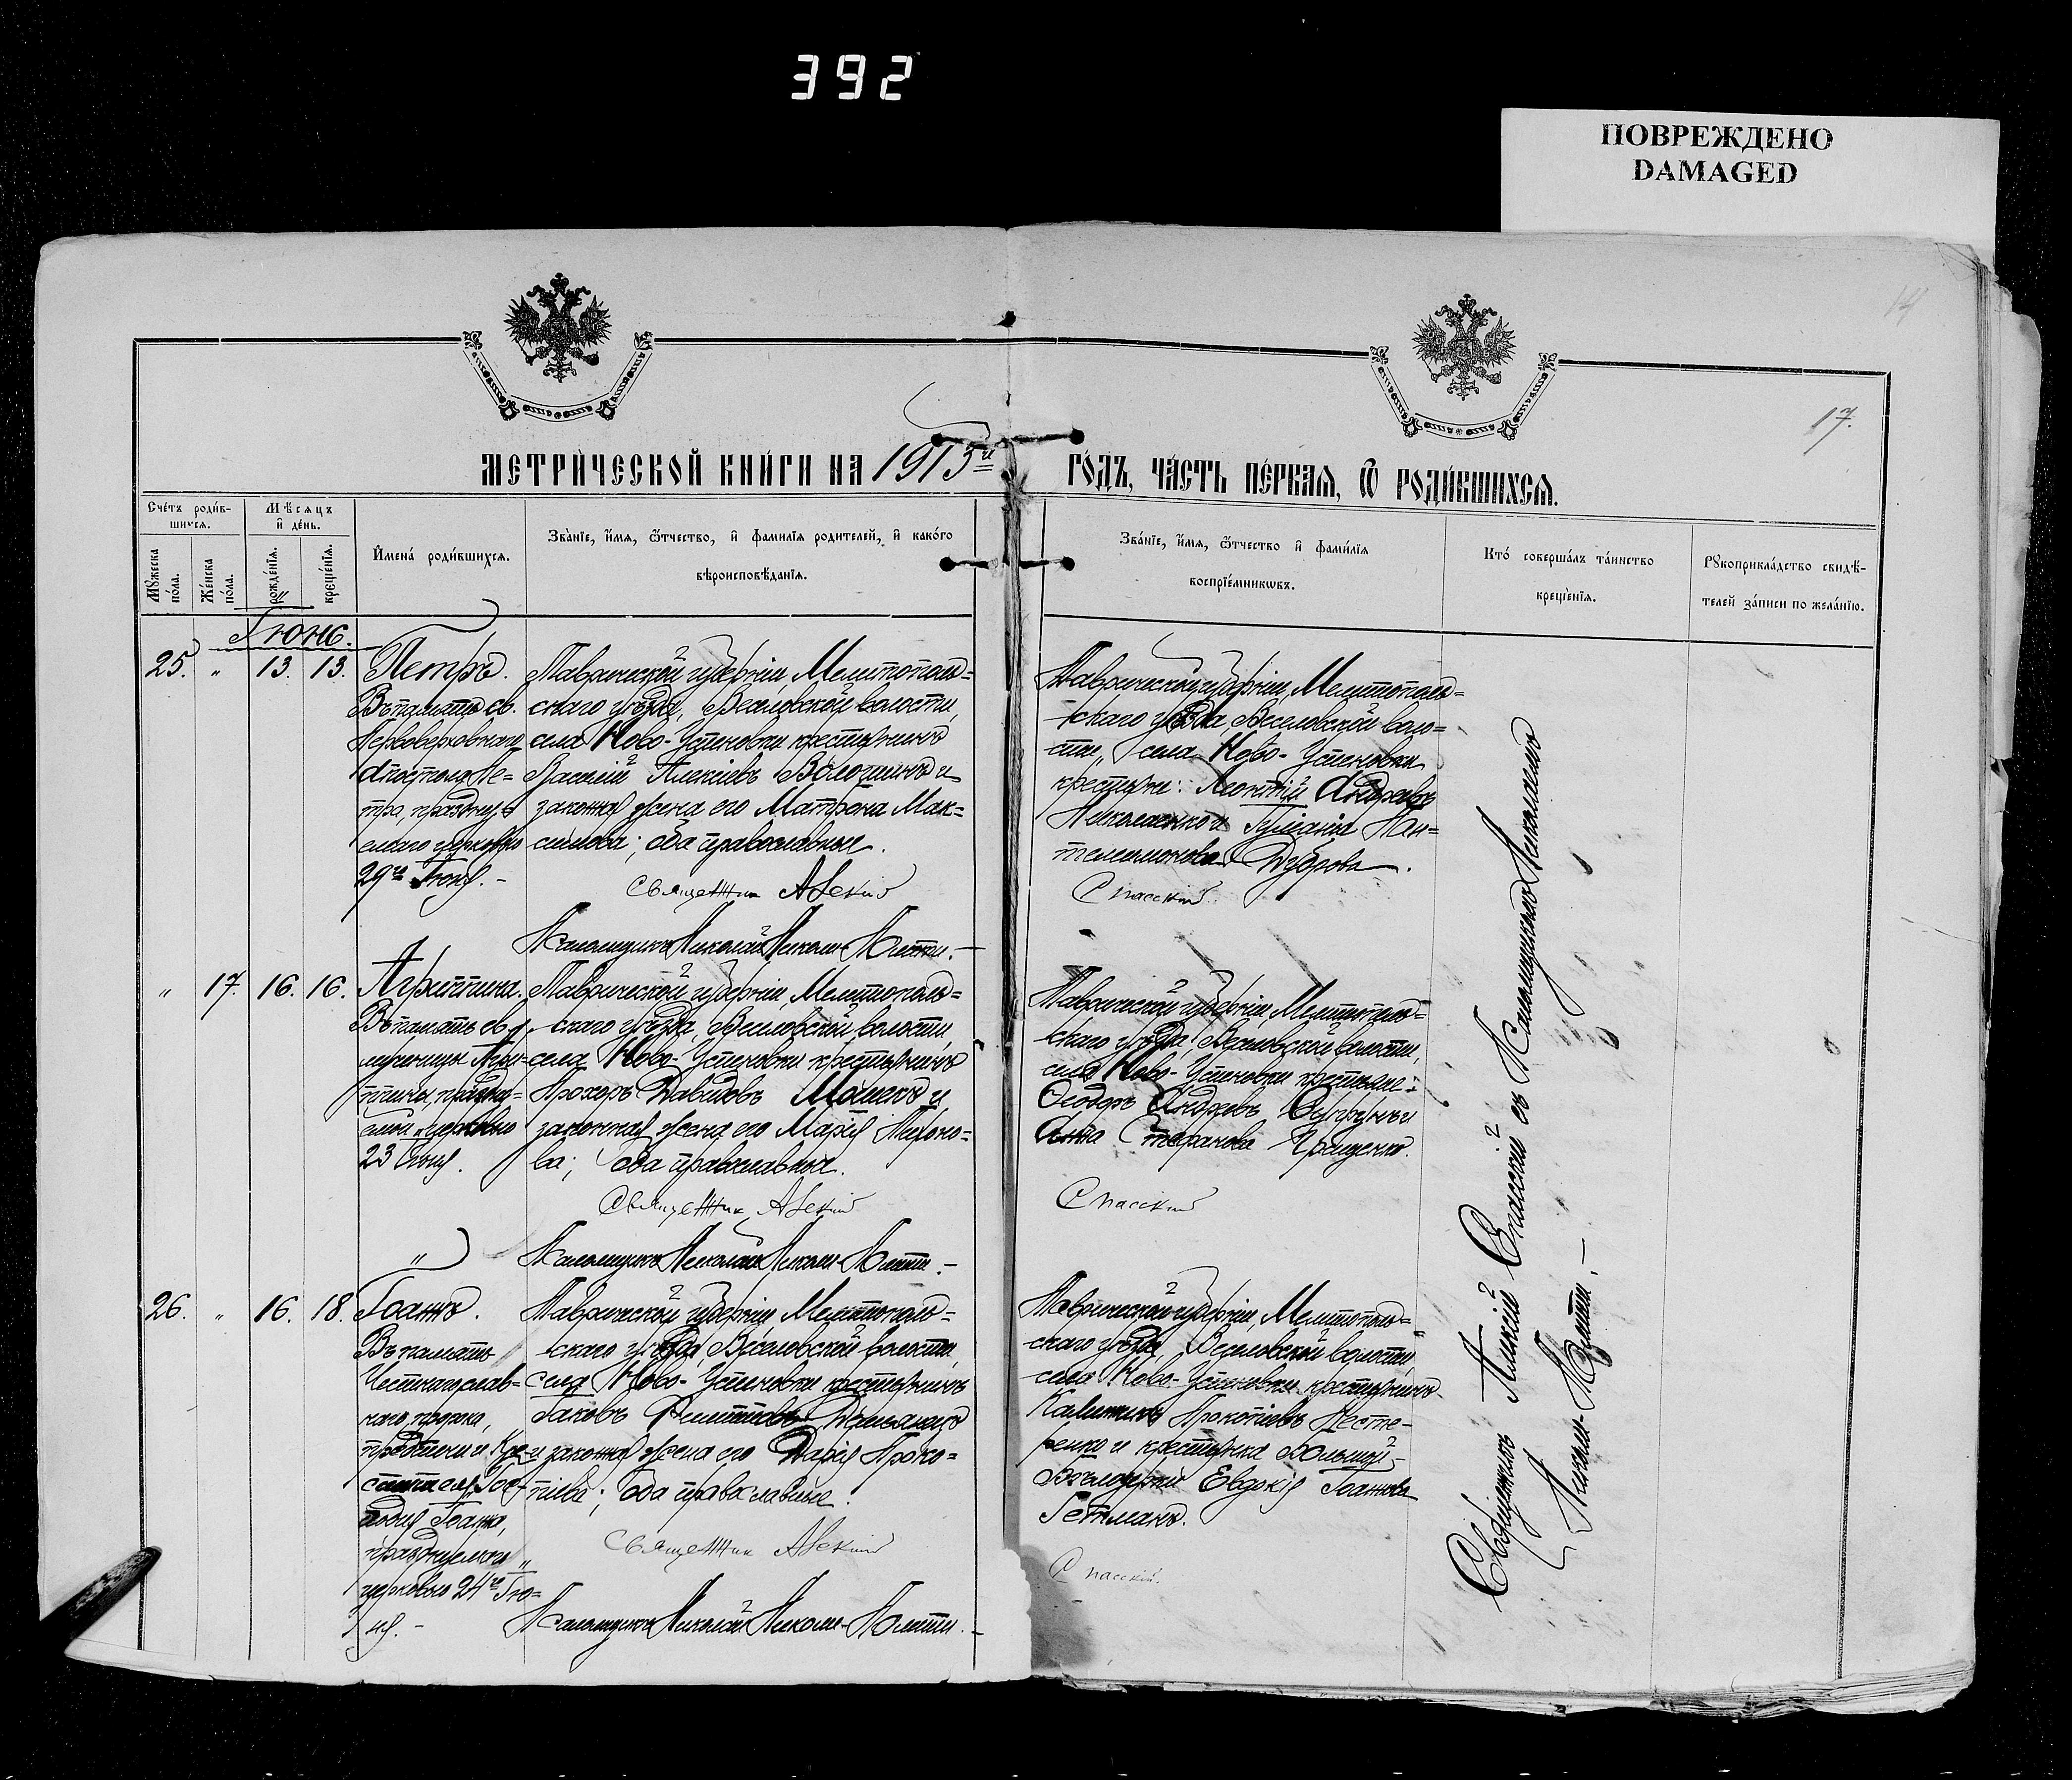 392
ПОВРЕЖДЕНО
DAMAGED
17.
МЕТРИЧЕСКОЙ КНИГИ НА 1913й ГОДЪ, ЧАСТЬ ПЕРВАЯ, Ѿ РОДИВШИХСЯ.
Счетъ родив-
шихся.
Мужеска
пола.
Женска
пола.
Мѣсяцъ
и день.
рожденія.
крещенія.
Имена родившихся.
Званіе, имя, ѿтчество, и фамилія родителей, и какого
вѣроисповѣданія.
Званіе, имя, ѿтчество и фамилія
воспріемникѡвъ.
Кто совершалъ таинство
крещенія.
Рукоприкладство свидѣ-
телей записи по желанію.
Іюнь.
25. " 13. 13.
Петръ.
Въ память св.
Первоверховнаго
Апостола Пе=
тра, праздну-
емаго церковію
29го Іюня. -
Таврической губерніи, Мелитополь=
скаго уѣзда, Веселовской волости,
села Ново-Успеновки крестьянинъ
Василій Алексіевъ Волошинъ и
законная жена его Матрона Мак=
симова; оба православные.
Священник Алекій
Псаломщикъ Николай Николи-
Таврической губерніи, Мелитополь=
скаго уѣзда, Веселовской воло=
сти, села Ново-Успеновки
крестьяне: Леонтій Андреевъ
Николаенко и Іуліанія Пан=
телеимонова Дуброва.
Спасскій
" 17. 16. 16.
Агриппина.
Въ память св.
мученицы Агри-
ппины, праздну=
емой церковію
23 Іюня.
Таврической губерніи, Мелитополь=
скаго уѣзда, Веселовской волости,
села Ново-Успеновки крестьянинъ
Прохоръ Давидовъ и
законная жена его Марія Тихоно=
ва; оба православные.
Священник Алекій
Псаломщикъ Николай Николи-
Таврической губерніи, Мелитополь=
скаго уѣзда, Веселовской волости,
села Ново-Успеновки крестьяне:
Ѳеодоръ Андреевъ и
Анна Стефанова Грищенко.
Спасскій
26. " 16. 18.
Іоаннъ.
Въ память
Честнаго слав-
наго, пророка,
предтечи и Кре-
стителя Гос-
подня Іоанна,
празднуемаго
церковью 24го Ію=
ня. -
Таврической губерніи, Мелитополь=
скаго уѣзда, Веселовской волости,
села Ново-Успеновки крестьянинъ
Іаковъ Филипповъ
и законная жена его Дарія Проко=
піева; оба православные.
Священник Алекій
Псаломщикъ Николай Николи-
Таврической губерніи, Мелитополь=
скаго уѣзда, Веселовской волости,
села Ново-Успеновки крестьянинъ
Калинникъ Прокопіевъ Несте-
ренко и крестьянка Большой-
Бѣлозерки Евдокія Іоаннова
Гетманъ.
Спасскій.
Священникъ Алексій Спасскій съ Псаломщикомъ Николаемъ
Николи-